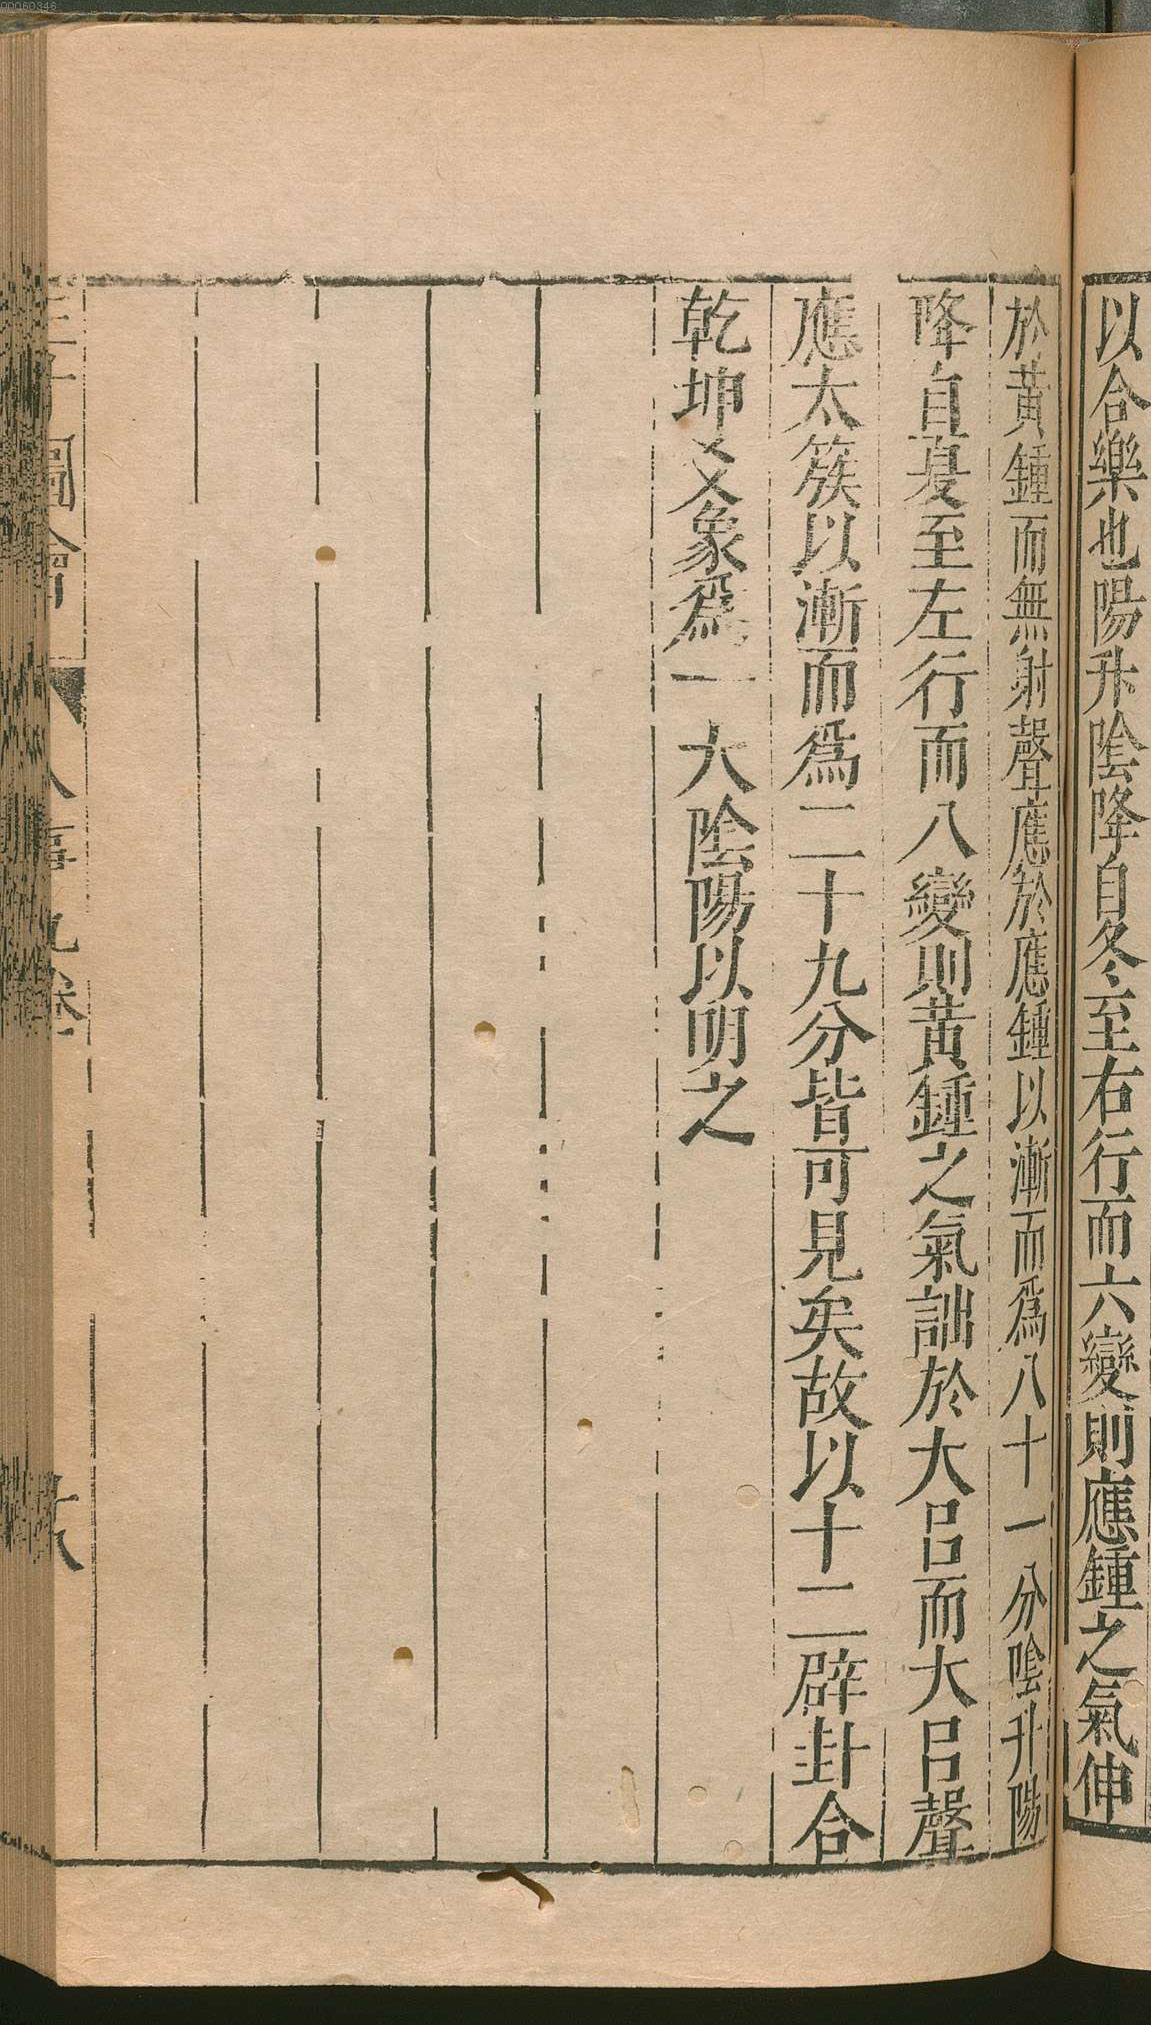 以合樂也陽升陰降自冬至右行而六變則應鍾之氣伸
於黃鍾而無射聲應於應鍾以漸而爲八十一分陰升陽
降自夏至左行而八變則黃鍾之氣詘於大呂而大呂聲
應太簇以漸而爲二十九分皆可見矣故以十二辟卦合
乾坤爻象爲一大陰陽以明之
圖會
九卷
00060346